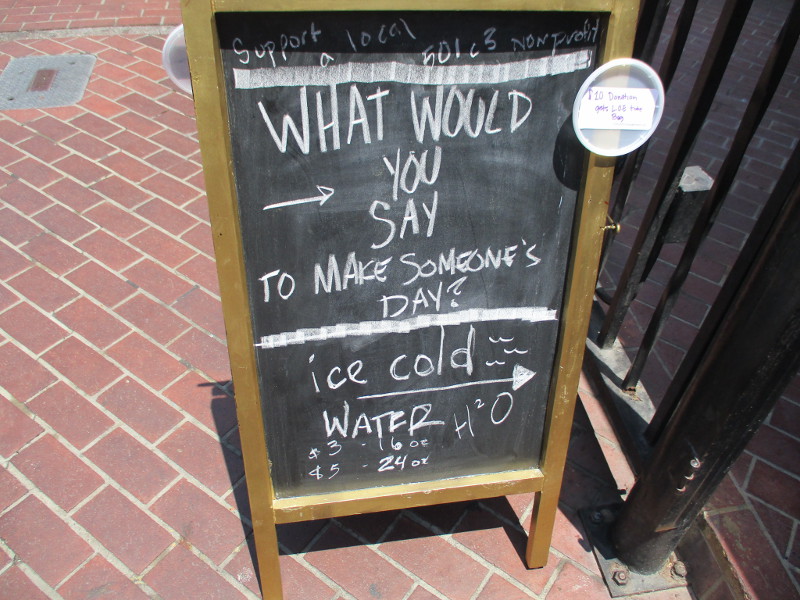 Support a local 501c3 Nonprofit
WHAT WOULD
YOU
SAY
TO MAKE SOMEONE'S
DAY?
ice cold
WATER H²O
$3 - 16 oz
$5 - 24 oz
$10 Donation
gets LOE tote
Bag